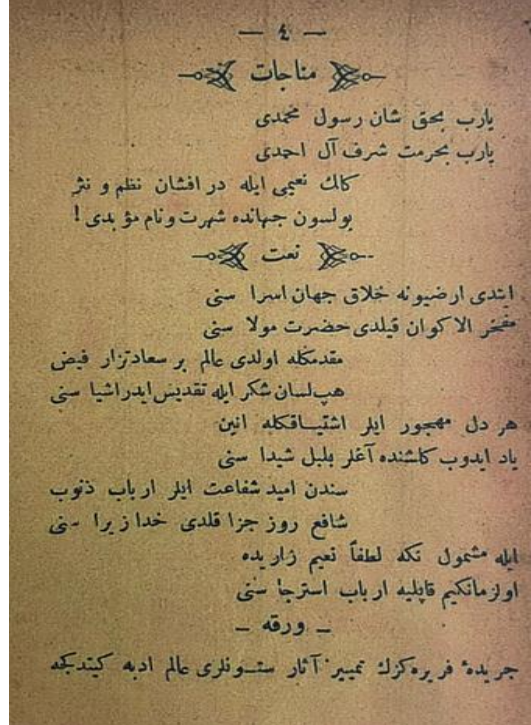 — ٤ —
مناجات
يارب بحق شان رسول محمدى
يارب بحرمت شرف آل احمدى
كلك نعيمى ايله در افشان نظم و نثر
بولسون جهانده شهرت ونام مؤبدى !
نعت
ايتدى ارضيونه خلاق جهان اسرا سنى
مفخر الاكوان قيلدى حضرت مولا سنى
مقدمكله اولدى عالم بر سعادتزار فيض
هپ لسان شكر ايله تقديس ايدر اشيا سنى
هر دل مهجور ايلر اشتياقكله انين
ياد ايدوب كلشنده آغلر بلبل شيدا سنى
سندن اميد شفاعت ايلر ارباب ذنوب
شافع روز جزا قلدى خدا زيرا سنى
ايله مشمول نكه لطفاً نعيم زاريده
اولزمانكيم قاپليه ارباب استرجا سنى
— ورقه —
جريدهٔ فريده كزك تمييز آثار ستونلرى عالم ادبه كيتدكجه